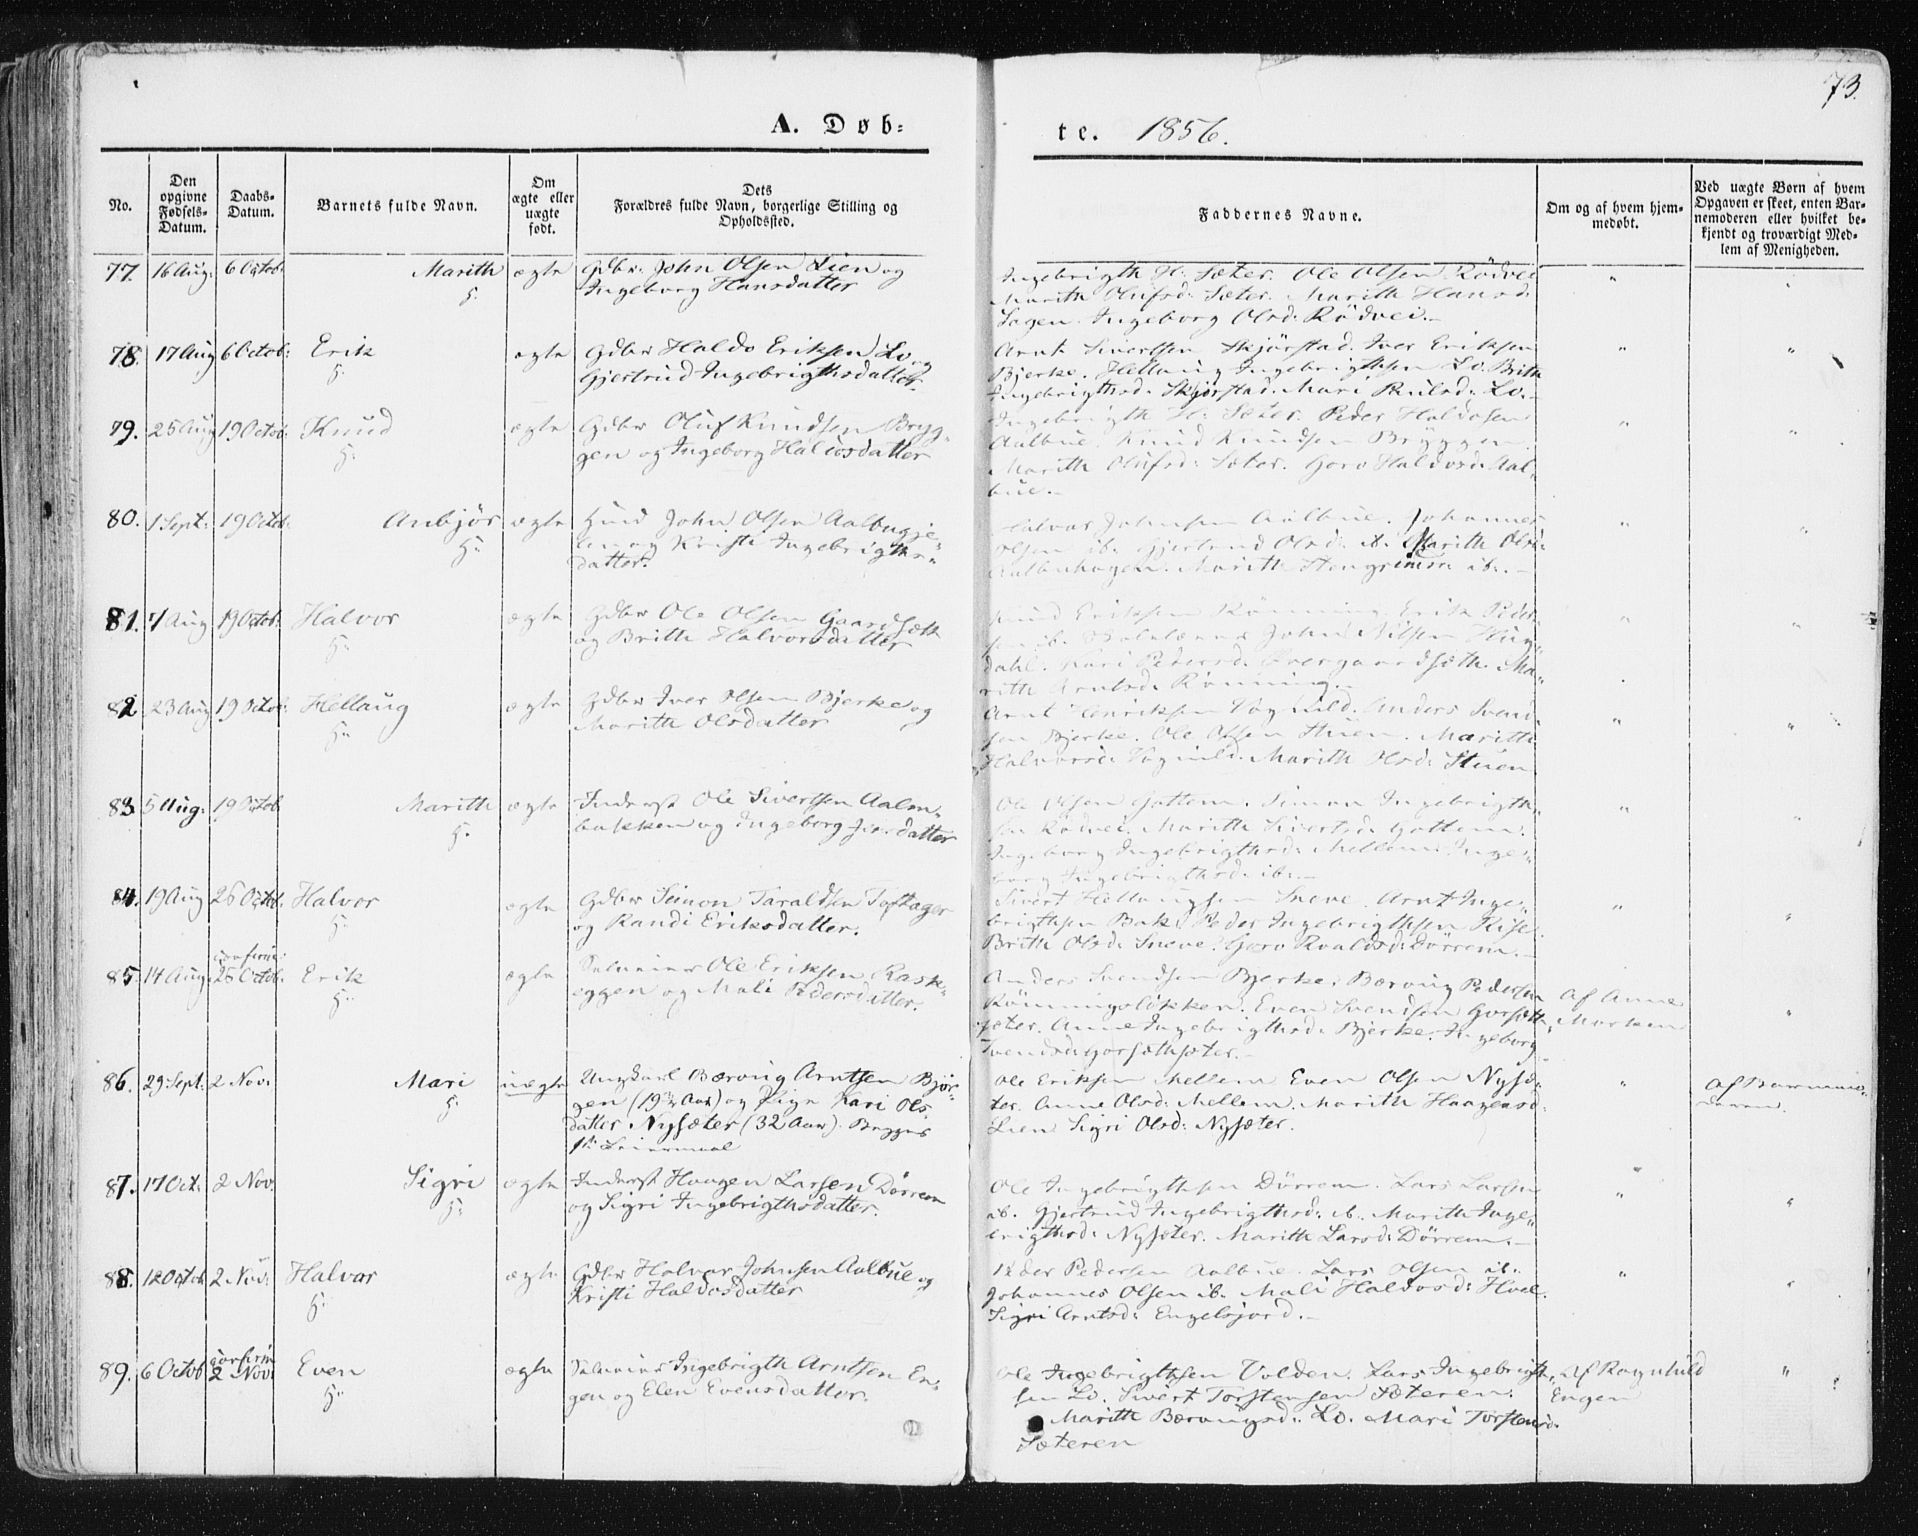 73.
A. Døb-
te. 1856.
No.
Den opgivne Fødsels-Datum.
Daabs-Datum.
Barnets fulde Navn.
Om ægte eller uægte født.
Dets Forældres fulde Navn, borgerlige Stilling og Opholdssted.
Faddernes Navne.
Om og af hvem hjem-medøbt.
Ved uægte Børn af hvem Opgaven er skeet, enten Bar-nemoderen eller hvilket be-kjendt og troværdigt Med-lem af Menigheden.
77. 16 Aug: 6 Octob: Marith ægte Gdbr: John Olsen Lien og
Ingeborg Hansdatter
Ingebrigth H: Sæter. Ole Olsen Rödvei
Marith Olufsd: Sæter. Marith Hansd:
Ingeborg Olsd: Rödvei.
78. 17 Aug 6 Octob: Erik ægte Gdbr Haldo Eriksen Lo og
Gjertrud Ingebrigthsdatter.
Arnt Sivertsen Skjörstad. Iver Eriksen
Bjerke. Hellaug Ingebrigthsen Lo. Brith
Ingebrigthsd: Skjörstad. Mari Lo.
79. 25 Aug 19 Octob: Knud ægte Gdbr Oluf Knudsen Bryg-
gen og Ingeborg Haldosdatter
Ingebrigth H: Sæter. Peder Haldosen
Aalbue. Knud Knudsen Bryggen.
Marith Olufsd: Sæter. Goro Haldosd: Aal-
bue.
80. 1 Sept: 19 Octob: Anbjör ægte John Olsen Aalbugje-
len og Kristi Ingebrigths-
datter.
Halvor Johnsen Aalbue. Johannes
Olsen ib. Gjertrud Olsd: ib. Marith Olsd:
Aalbuhagen. Marith ib.
81. 7 Aug 19 Octob: Halvor ægte Gdbr Ole Olsen Gaardsæth
og Brith Halvorsdatter
Knud Eriksen Rönning. Erik Peder-
sen ib. John Nilsen
dahl. Kari Pedersd: Övergaardsæth. Ma-
rith Arntsd: Rönning.
82 23 Aug 19 Octob: Hellaug ægte Gdbr Iver Olsen Bjerke og
Marith Olsdatter
Arnt Henriksen Vognild. Anders Svend-
sen Bjerke. Ole Olsen Stuen. Marith
Halvorsd: Vognild. Marith Olsd: Stuen
83 5 Aug: 19 Octob Marith ægte Inderst Ole Sivertsen Aalm-
bakken og Ingeborg datter
Ole Olsen Gottem. Simon Ingebrigth-
sen Rödvei. Marith Sivertsd: Gottem.
Ingeborg Ingebrigthsd: Mellem. Inge-
borg Ingebrigthsd: ib.
84. 19 Aug 26 Octob. Halvor ægte Gdbr Simon Taraldsen Toftager
og Randi Eriksdatter.
Sivert Hellaugsen Sneve. Arnt Inge-
brigthsen Bak. Peder Ingebrigthsen Rise.
Brith Olsd: Sneve. Goro Roaldsd: Dörrem.
85. 14 Aug confirm: 26 Octob. Erik ægte Ole Eriksen Rask-
eggen og Mali Pedersdatter.
Anders Svendsen Bjerke. Bæraug Pedersen
Rönningslökken. Even Svendsen Gorsæth-
sæter. Anne Ingebrigthsd: Bjerke. Ingeborg
Svendsd: Gorsæthsæter.
Af Anne
Morken
86. 29 Sept: 2 Nov: Mari uægte Ungkarl Bæraug Arntsen Björ-
gen (19 ½ Aar) og Pige Kari Ols-
datter Nysæter (32 Aar). Begges
1ste Leiermaal
Ole Eriksen Mellem. Even Olsen Nysæ-
ter. Anne Olsd: Mellem. Marith Haagensd:
Lien. Sigri Olsd: Nysæter.
Af Barnemo-
deren.
87. 17 Oct: 2 Nov. Sigri ægte Inderst Haagen Larsen Dörrem
og Sigri Ingebrigthsdatter.
Ole Ingebrigthsen Dörrem. Lars Larsen
ib. Gjertrud Ingebrigthsd: ib. Marith Inge-
brigthsd: Nysæter. Marith Larsd: Dörrem.
88. 12 Octob 2 Nov: Halvor ægte Gdbr Halvor Johnsen Aalbue og
Kristi Haldosdatter
Peder Pedersen Aalbue. Lars Olsen ib.
Johannes Olsen ib. Mali Haldosd: Hoel.
Sigri Arntsd: Engelsjord.
89. 6 Octob confirm 2 Nov: Even ægte Ingebrigth Arntsen En-
gen og Elen Evensdatter.
Ole Ingebrigthsen Volden. Lars Ingebrigth-
sen Lo. Sivert Torstensen Sæteren.
Marith Bæraugsd: Lo. Mari Torstensd:
Sæteren
Af Ragnhild
Engen